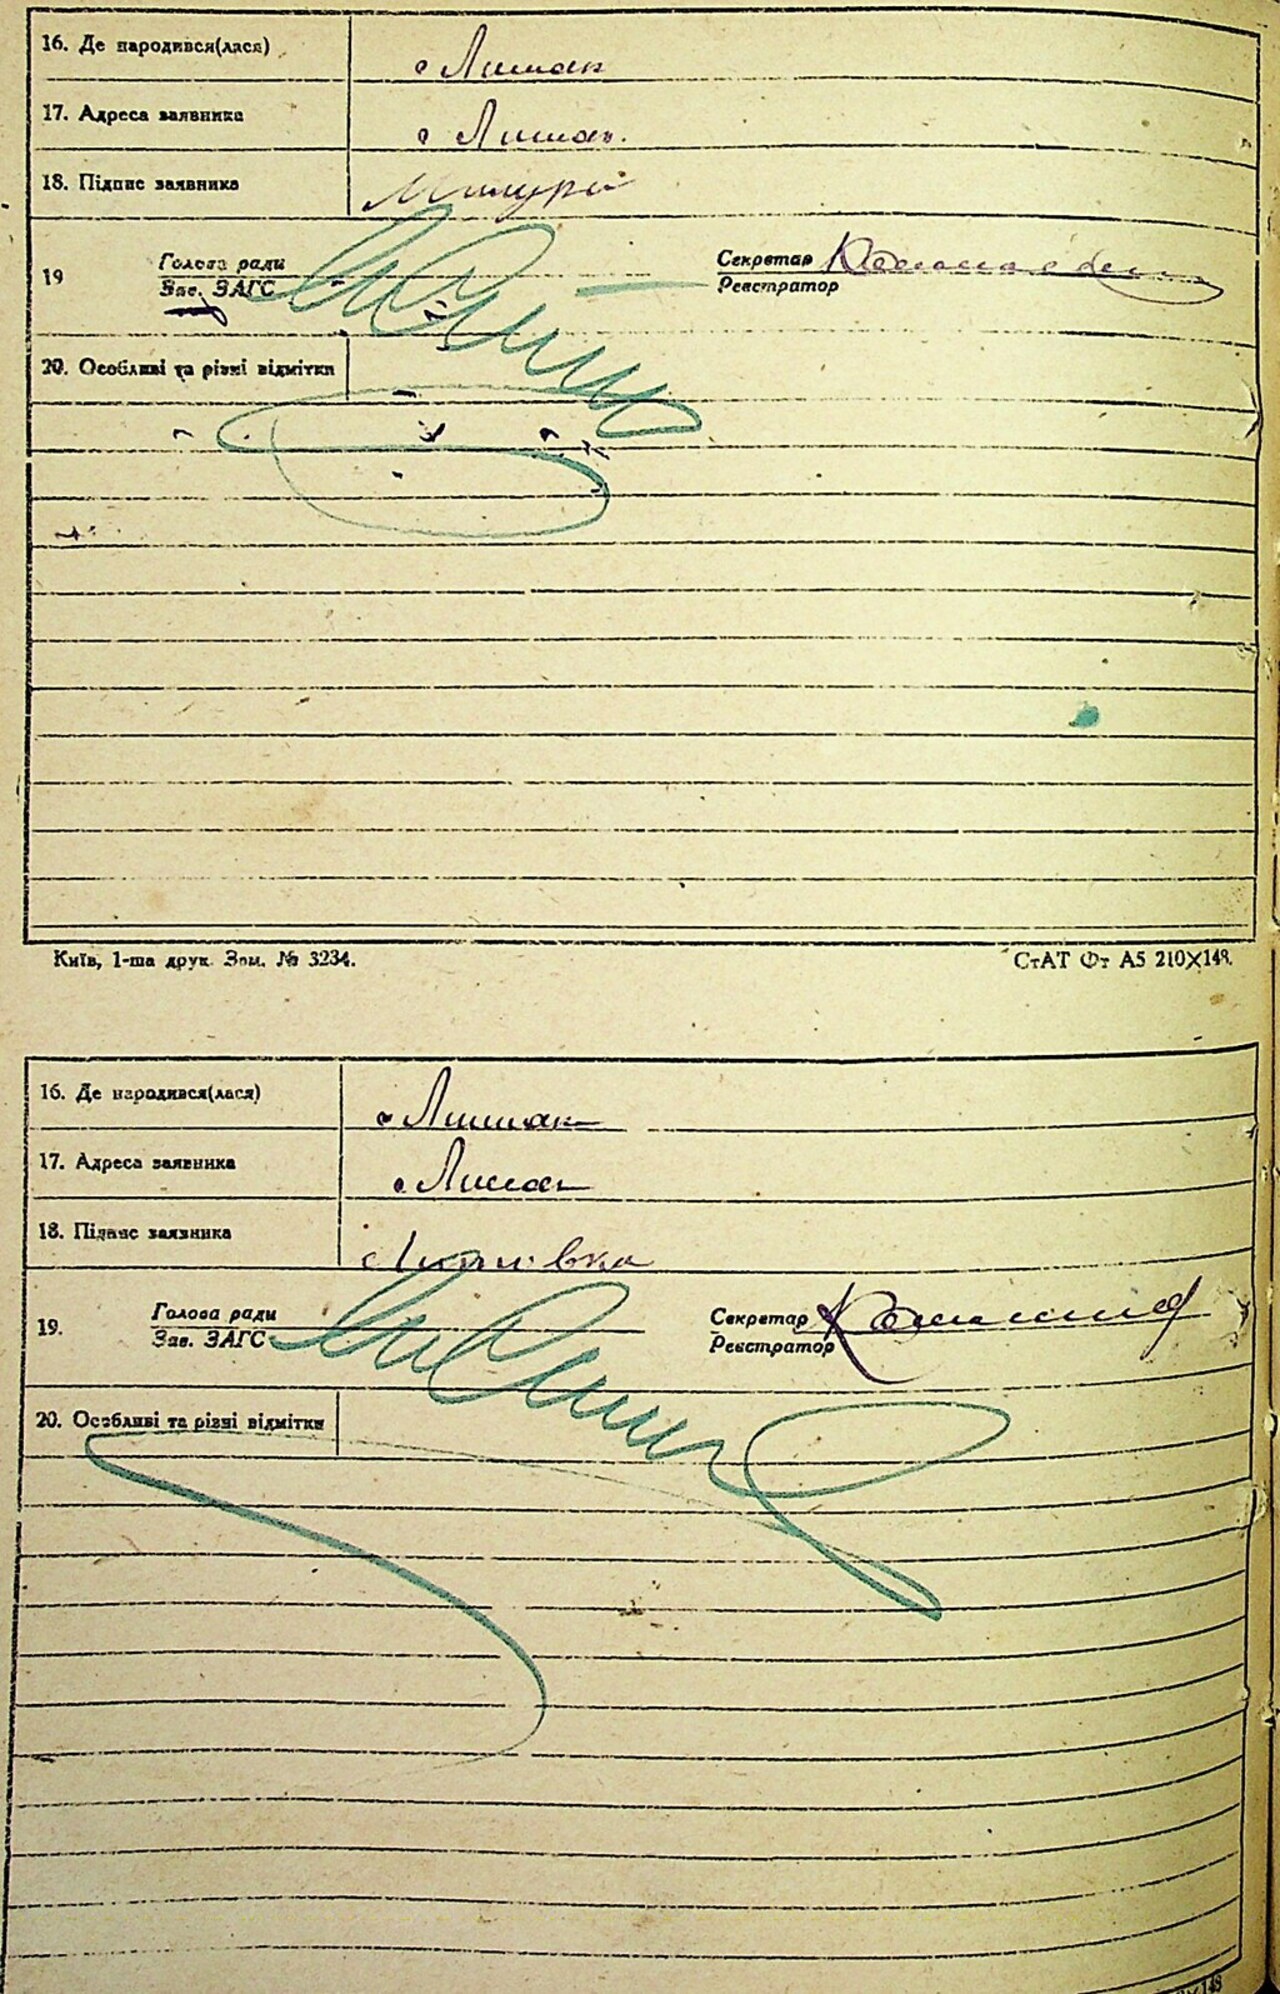 16. Де народився(лася)
с Лиман
17. Адреса заявника
с Лиман.
18. Підпис заявника
19 Голова ради
Зав. ЗАГС
Секретар
Реєстратор
20. Особливі та різні відмітки
Київ, 1-ша друк. Зам. № 3234. СтАТ Фт А5 210×148.
16. Де народився(лася)
с Лиман
17. Адреса заявника
с Лиман
18. Підпис заявника
19. Голова ради
Зав. ЗАГС
Секретар
Реєстратор
20. Особливі та різні відмітки